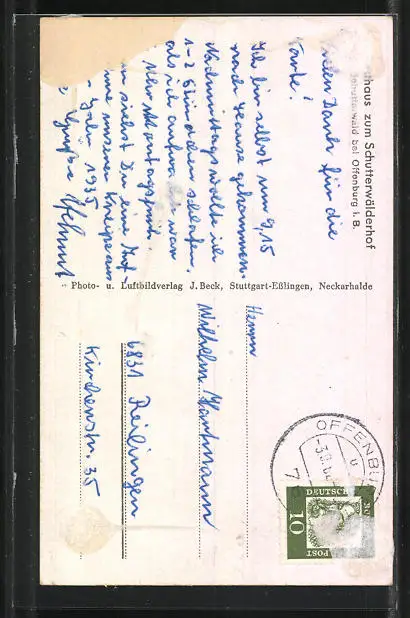 haus zum Schutterwälderhof
Schutterwald bei Offenburg i. B.
Vielen Dank für die
Karte!
Ich bin selbst um 9,15
nach Hause gekommen.
Nachmittags wollte ich
1-2 Stündchen schlafen,
als ich aufwachte war
Montagfrüh.
siehst Du eine Auf
unserer Kneipe aus
1935
Grüße Helmut
Photo- u. Luftbildverlag J. Beck, Stuttgart-Eßlingen, Neckarhalde
Herrn
Wilhelm Hartmann
6831 Reilingen
Kirchenstr. 35
OFFENBU
DEUTSCHE
10
POST